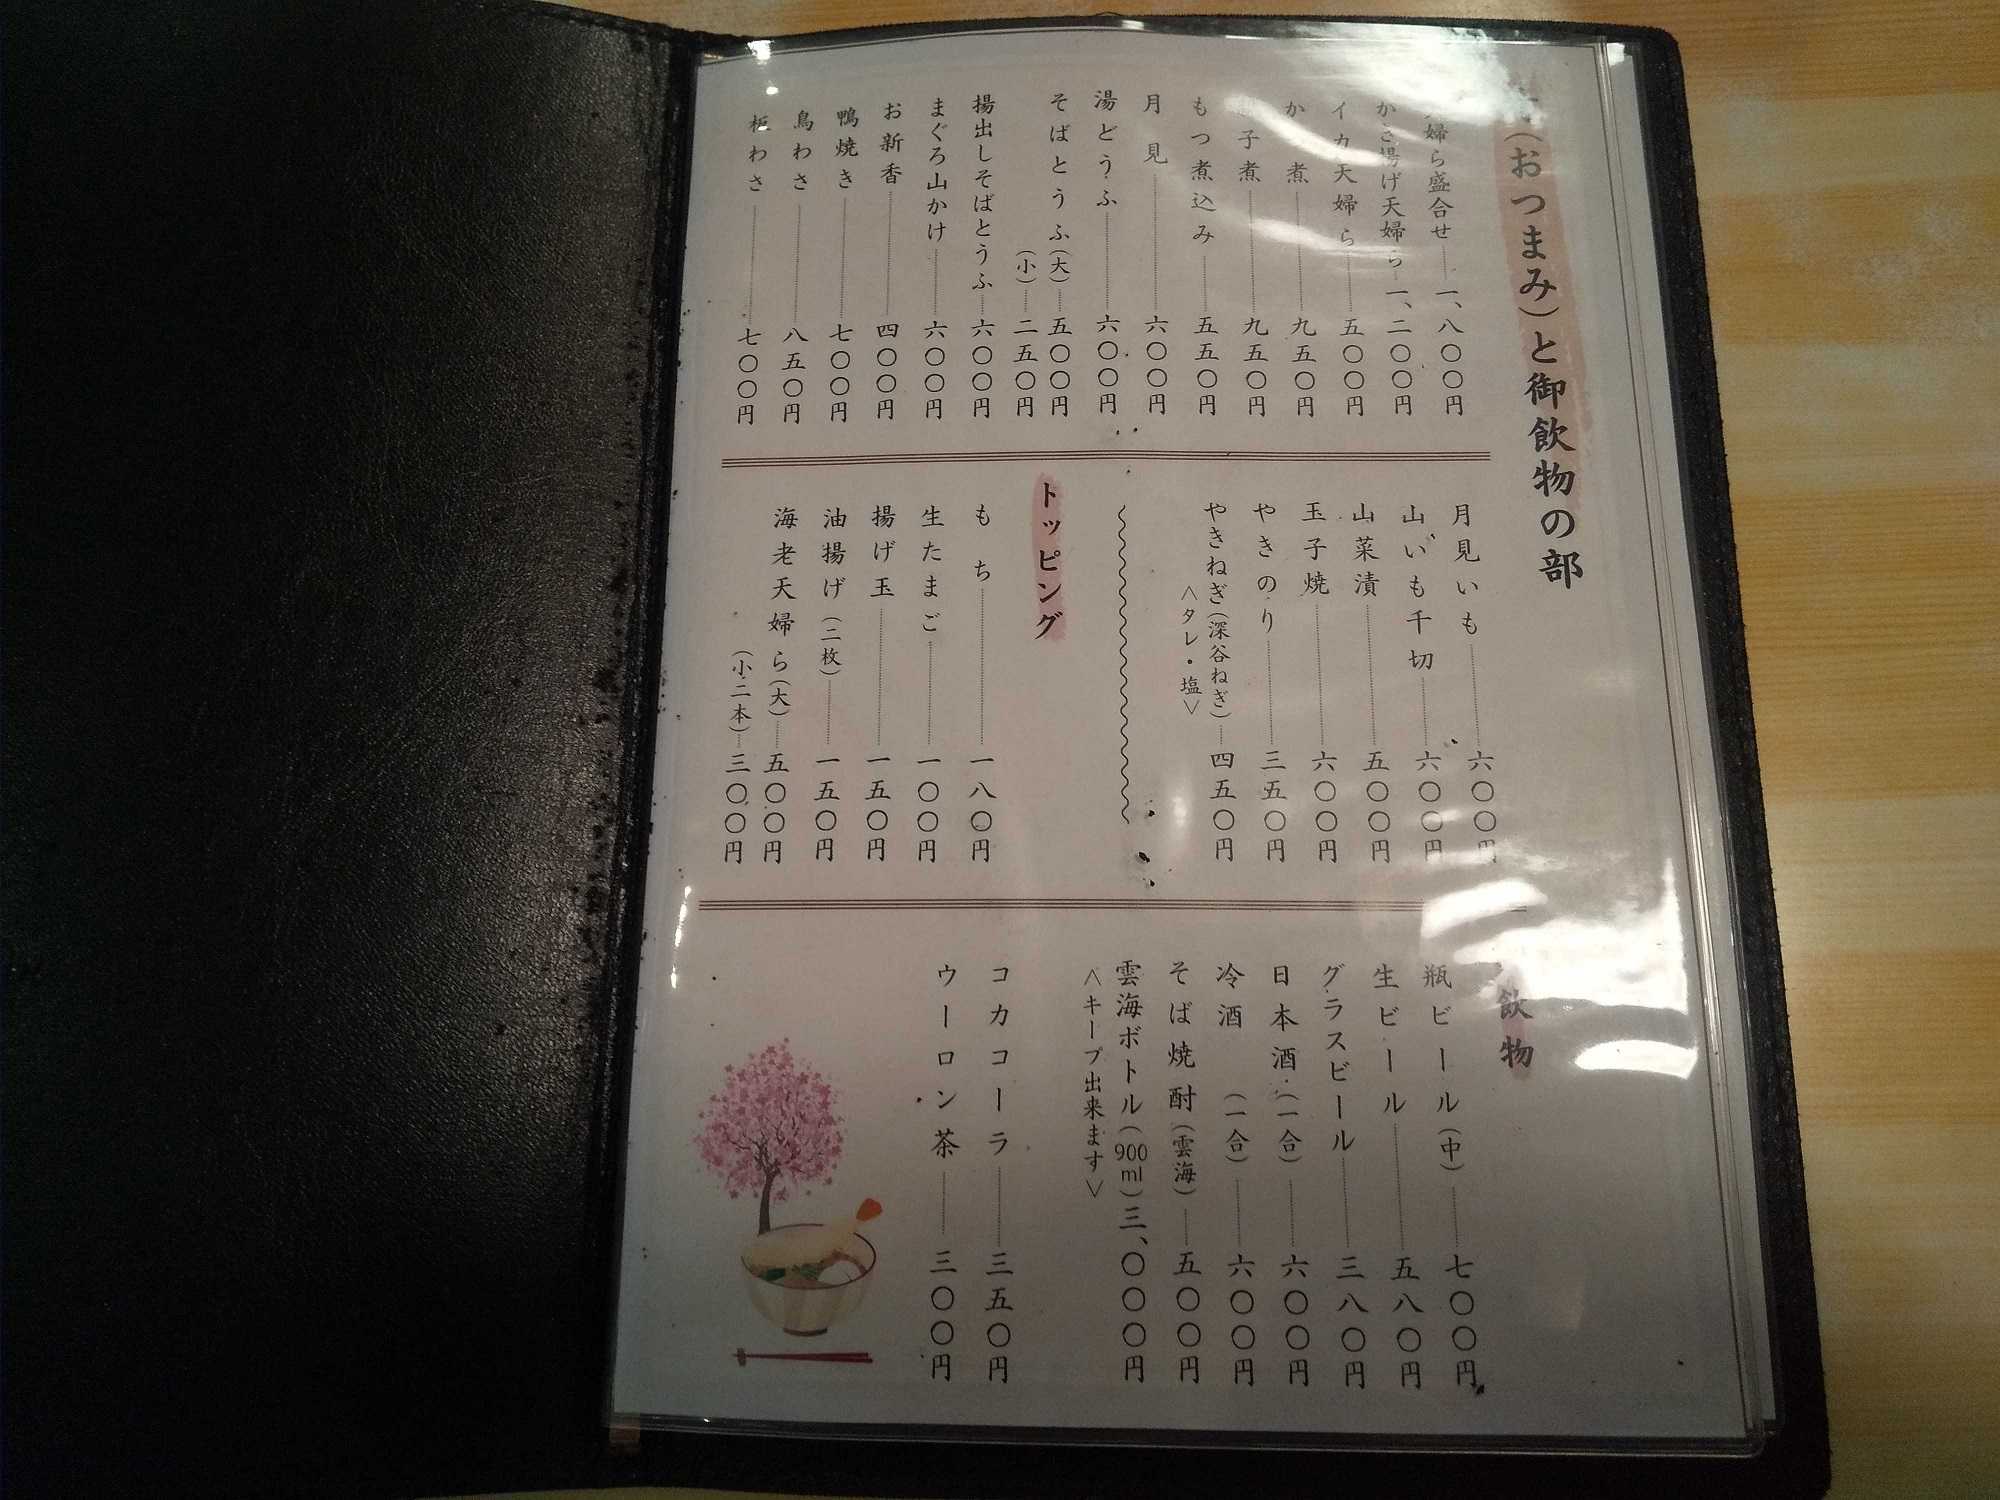 (おつまみ)と御飲物の部
婦ら盛合せ 一、八〇〇円
かき揚げ天婦ら 一、二〇〇円
イカ天婦ら 五〇〇円
か 煮 九五〇円
子煮 九五〇円
もつ煮込み 五五〇円
月見 六〇〇円
湯どうふ 六〇〇円
そばとうふ(大) 五〇〇円
(小) 二五〇円
揚出しそばとうふ 六〇〇円
まぐろ山かけ 六〇〇円
お新香 四〇〇円
鴨焼き 七〇〇円
鳥わさ 八五〇円
板わさ 七〇〇円
月見いも 六〇〇円
山いも千切 六〇〇円
山菜漬 五〇〇円
玉子焼 六〇〇円
やきのり 三五〇円
やきねぎ(深谷ねぎ) 四五〇円
<タレ・塩>
トッピング
もち 一八〇円
生たまご 一〇〇円
揚げ玉 一五〇円
油揚げ(二枚) 一五〇円
海老天婦ら(大) 五〇〇円
(小二本) 三〇〇円
飲物
瓶ビール(中) 七〇〇円
生ビール 五八〇円
グラスビール 三八〇円
日本酒(一合) 六〇〇円
冷酒(一合) 六〇〇円
そば焼酎(雲海) 五〇〇円
雲海ボトル(900ml) 三、〇〇〇円
<キープ出来ます>
コカコーラ 三五〇円
ウーロン茶 三〇〇円